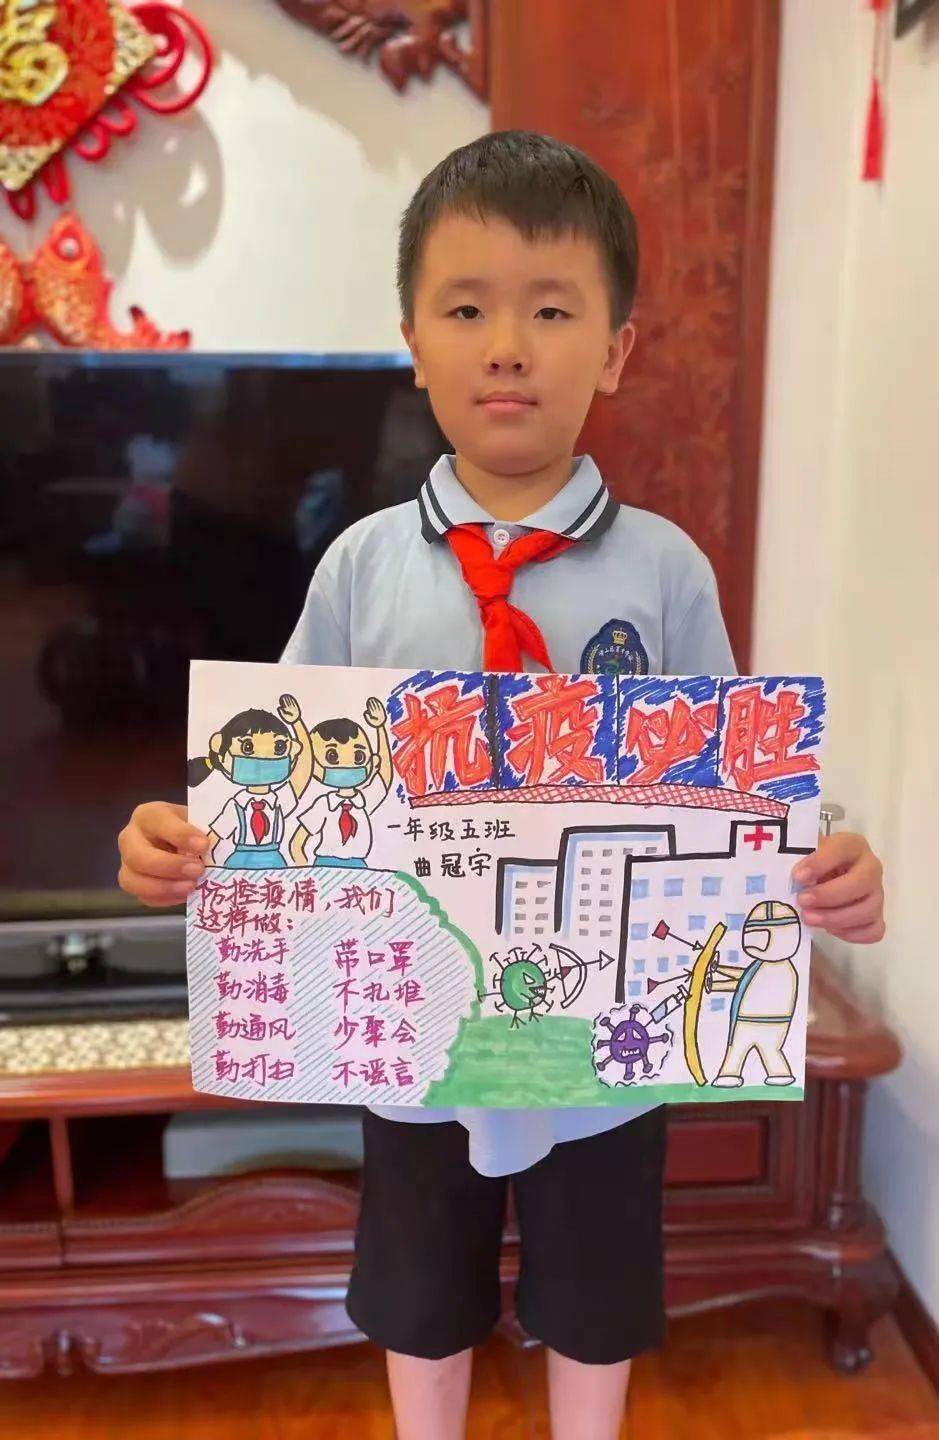 抗疫必胜
一年级五班
曲冠宇
防控疫情，我们
这样做：
勤洗手 带口罩
勤消毒 不扎堆
勤通风 少聚会
勤打扫 不谣言